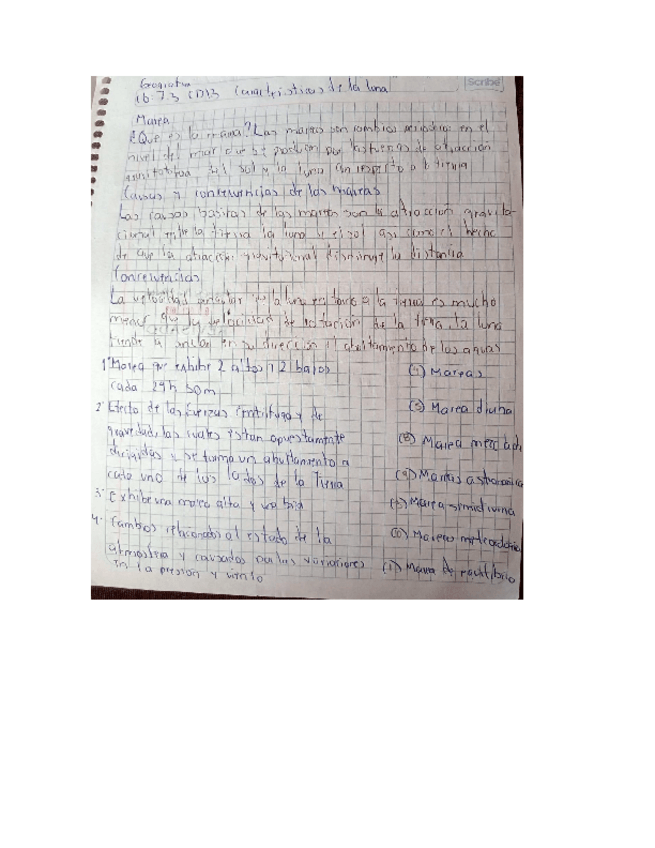 Geografia
Scribe
Caracteristicas de la luna
Marea
¿Que es la marea? Las mareas son cambios periodicos en el
nivel del mar que se producen por las fuerzas de atracción
gravitatoria del sol y la luna con respecto a la tierra
Causas y concecuencias de las mareas
Las causas basicas de las mareas son la atracción gravita-
cional entre la tierra la luna y el sol asi como el hecho
de que la atracción gravitacional disminuye la distancia
Concecuencias
La velocidad de la luna en torno a la tierra es mucho
menor que la velocidad de rotación de la tierra, la luna
tiende a en su dirección el abultamiento de las aguas
1- Marea que exhibe 2 altos y 2 bajos
cada 24h 50m
2- Efecto de las fuerzas centrifuga y de
gravedad, las cuales estan opuestamente
dirigidas y se forma un abultamiento a
cada uno de los lados de la Tierra
3- Exhibe una marea alta y una baja
4- Cambios relacionados al estado de la
atmosfera y causados por las variaciones
en la presion y viento
Mareas
Marea diurna
Marea
Mareas astronomica
Marea
Mareas
Marea de equilibrio